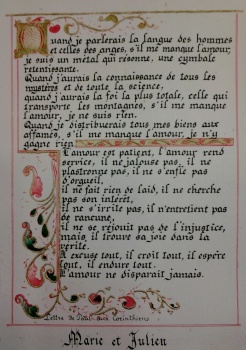 Quand je parlerais la langue des hommes
et celles des anges, s'il me manque l'amour,
je suis un métal qui résonne, une cymbale
retentissante.
Quand j'aurais la connaissance de tous les
mystères et de toute la science,
quand j'aurais la foi la plus totale, celle qui
transporte les montagnes, s'il me manque
l'amour, je ne suis rien.
Quand je distribuerais tous mes biens aux
affamés, s'il me manque l'amour, je n'y
gagne rien
L'amour est patient, l'amour rend
service, il ne jalouse pas, il ne
plastronne pas, il ne s'enfle pas
d'orgueil,
il ne fait rien de laid, il ne cherche
pas son intérêt,
il ne s'irrite pas, il n'entretient pas
de rancune,
il ne se réjouit pas de l'injustice,
mais il trouve sa joie dans la
vérité.
Il excuse tout, il croit tout, il espère
tout, il endure tout.
L'amour ne disparait jamais.
Lettre de Paul aux Corinthiens
Marie et Julien